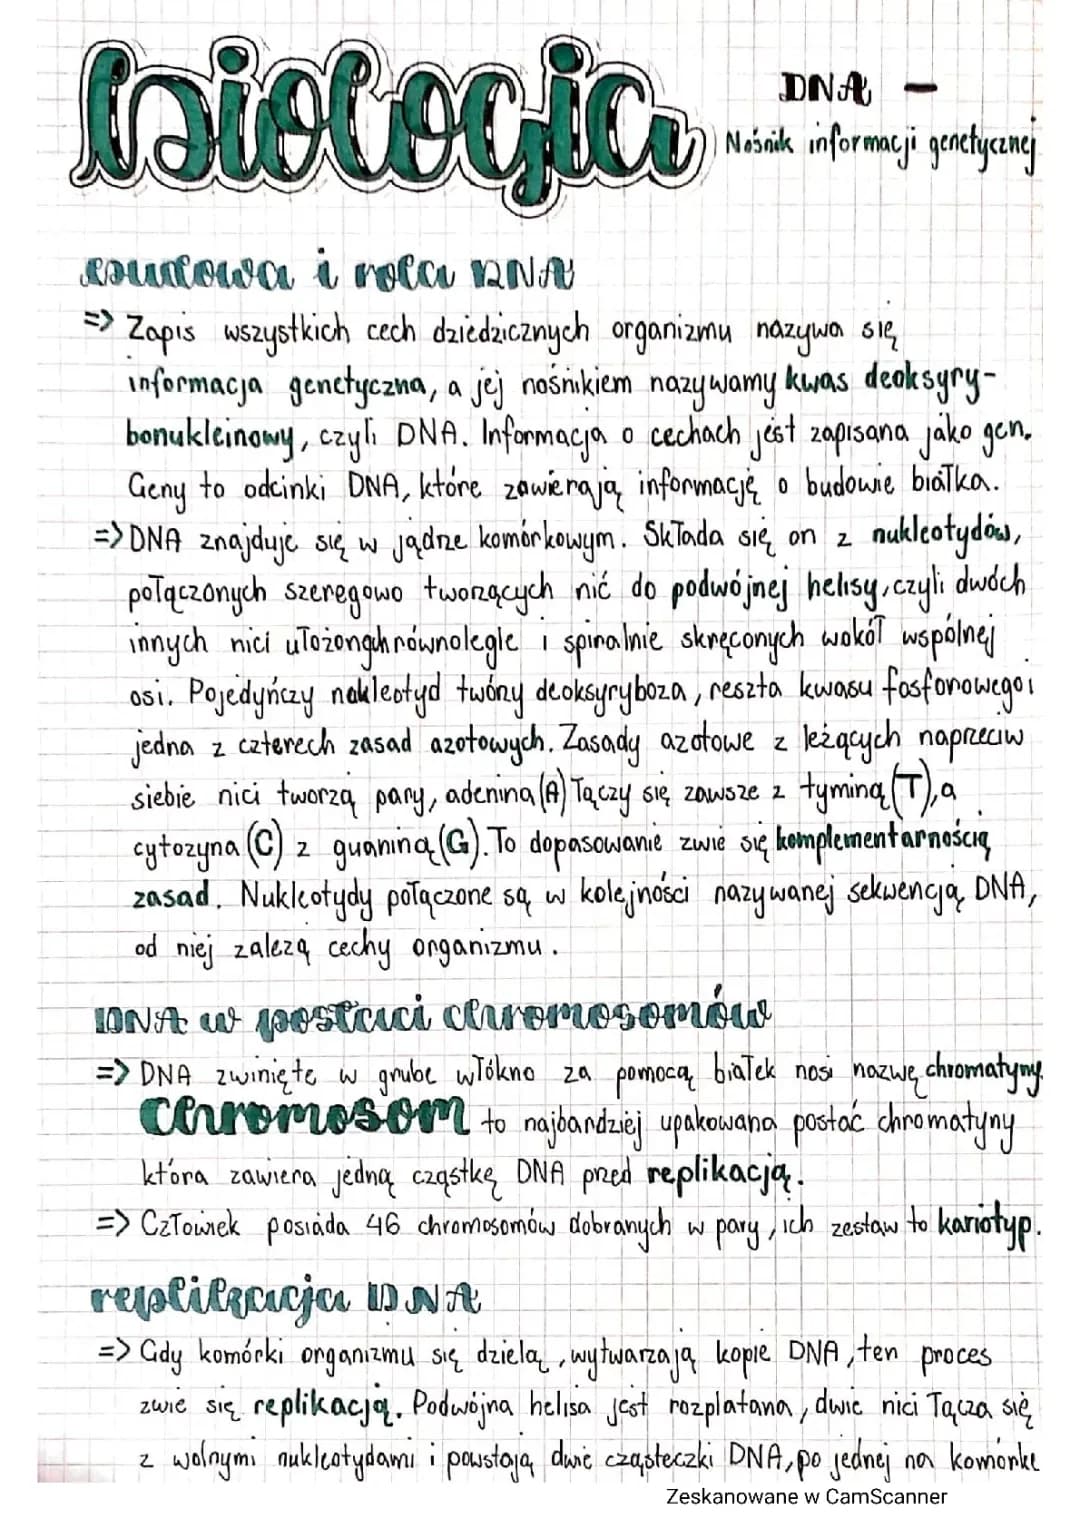 biologia
DNA –
Nośnik informacji genetycznej
budowa i rola DNA
=> Zapis wszystkich cech dziedzicznych organizmu nazywa się
informacja genetyczna, a jej nośnikiem nazywamy kwas deoksyry-
bonukleinowy, czyli DNA. Informacja o cechach jest zapisana jako gen.
Geny to odcinki DNA, które zawierają informację o budowie białka.
=> DNA znajduje się w jądrze komórkowym. Składa się on z nukleotydów,
połączonych szeregowo tworzących nić do podwójnej helisy, czyli dwóch
innych nici ułożonych równolegle i spiralnie skręconych wokół wspólnej
osi. Pojedyńczy nukleotyd tworzy deoksyryboza, reszta kwasu fosforowego i
jedna z czterech zasad azotowych. Zasady azotowe z leżących naprzeciw
siebie nici tworzą pary, adenina (A) łączy się zawsze z tyminą (T), a
cytozyna (C) z guaniną (G). To dopasowanie zwie się komplementarnością
zasad. Nukleotydy połączone są w kolejności nazywanej sekwencją DNA,
od niej zależą cechy organizmu.
DNA w postaci chromosomów
=> DNA zwinięte w grube włókno za pomocą białek nosi nazwę chromatyny.
Chromosom to najbardziej upakowana postać chromatyny
która zawiera jedną cząstkę DNA przed replikacją.
=> Człowiek posiada 46 chromosomów dobranych w pary, ich zestaw to kariotyp.
replikacja DNA
=> Gdy komórki organizmu się dzielą, wytwarzają kopie DNA, ten proces
zwie się replikacją. Podwójna helisa jest rozplatana, dwie nici łącza się
z wolnymi nukleotydami i powstają dwie cząsteczki DNA, po jednej na komórkę
Zeskanowane w CamScanner